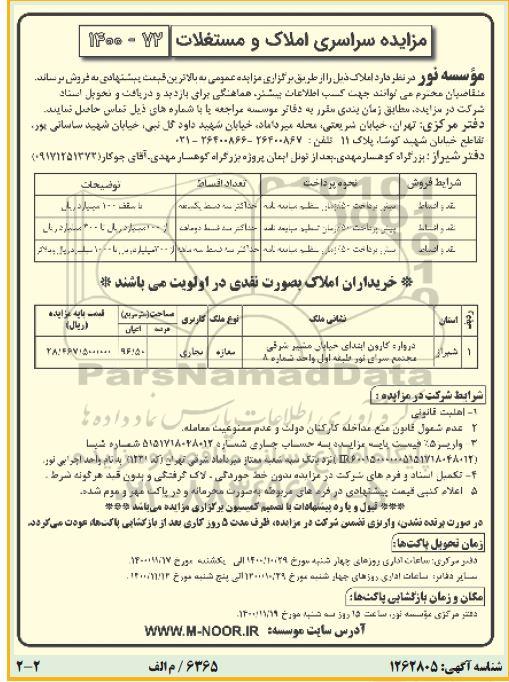 مزایده سراسری املاک و مستغلات ۷۲ - ۱۴۰۰
مؤسسه نور در نظر دارد املاک ذیل را از طریق برگزاری مزایده عمومی به بالاترین قیمت پیشنهادی به فروش برساند.
متقاضیان محترم می توانند جهت کسب اطلاعات بیشتر، هماهنگی برای بازدید و دریافت و تحویل اسناد
شرکت در مزایده، مطابق زمان بندی مقرر به دفاتر موسسه مراجعه یا با شماره های ذیل تماس حاصل نمایند.
دفتر مرکزی: تهران، خیابان شریعتی، محله میرداماد، خیابان شهید داود گل نبی، خیابان شهید ساسانی پور،
تقاطع خیابان شهید کوشا، پلاک ۱۱ تلفن : ۲۶۴۰۰۸۶۷ -۲۶۴۰۰۸۶۶ - ۰۲۱
دفتر شیراز : بزرگراه کوهسار مهدی-بعد از تونل ایمان پروژه بزرگراه کوهسار مهدی-آقای جوکار(۰۹۱۷۱۲۵۱۳۷۳)
شرایط فروش نحوه پرداخت تعداد اقساط توضیحات
نقد و اقساط پیش پرداخت ۵۰٪ زمان تنظیم مبایعه نامه حداکثر سه قسط یکماهه تا سقف ۱۰۰ میلیارد ریال
نقد و اقساط پیش پرداخت ۵۰٪ زمان تنظیم مبایعه نامه حداکثر سه قسط دوماهه از ۱۰۰ میلیارد ریال تا ۳۰۰ میلیارد ریال
نقد و اقساط پیش پرداخت ۵۰٪ زمان تنظیم مبایعه نامه حداکثر سه قسط سه ماهه از ۳۰۰ میلیارد ریال تا ۱۰۰۰ میلیارد ریال و بالاتر
* خریداران املاک بصورت نقدی در اولویت می باشند *
ردیف استان نشانی ملک نوع ملک کاربری مساحت(مترمربع) عرصه اعیان قیمت پایه مزایده (ریال)
۱ شیراز دروازه کازرون ابتدای خیابان مشیر شرقی مجتمع سرای نور طبقه اول واحد شماره ۸ مغازه تجاری ۹۶/۵۰ ۲۸/۴۶۷/۵۰۰/۰۰۰
شرایط شرکت در مزایده :
۱- اهلیت قانونی
۲ عدم شمول قانون منع مداخله کارکنان دولت و عدم ممنوعیت معامله.
۳ واریز ۵٪ قیمت پایه مزایده به حساب جاری شماره ۵۱۵۱۷۱۸۰۴۸۰۱۲ شماره شبا
نزد بانک سپه شعبه ممتاز میرداماد شرقی تهران (کد ۱۲۳۱) به نام واحد اجرایی نور.
۴- تکمیل اسناد و فرم های شرکت در مزایده بدون خط خوردگی ، لاک گرفتگی و بدون قید هرگونه شرط .
۵ اعلام کتبی قیمت پیشنهادی در فرم های مربوطه به صورت محرمانه و در پاکت مهر و موم شده.
*** قبول و یا رد پیشنهادات با تصمیم کمیسیون برگزاری مزایده می باشد ***
در صورت برنده نشدن، واریزی تضمین شرکت در مزایده، ظرف مدت ۵ روز کاری بعد از بازگشایی پاکت‌ها، عودت می‌گردد.
زمان تحویل پاکت‌ها:
دفتر مرکزی: ساعات اداری روزهای چهار شنبه مورخ ۱۴۰۰/۱۰/۲۹ الی یکشنبه مورخ ۱۴۰۰/۱۱/۱۷.
سایر دفاتر: ساعات اداری روزهای چهار شنبه مورخ ۱۴۰۰/۱۰/۲۹ الی پنج شنبه مورخ ۱۴۰۰/۱۱/۱۴ .
مکان و زمان بازگشایی پاکت‌ها:
دفتر مرکزی مؤسسه نور، ساعت ۱۵ روز سه شنبه مورخ ۱۴۰۰/۱۱/۱۹.
آدرس سایت موسسه: WWW.M-NOOR.IR
شناسه آگهی: ۱۲۶۲۸۰۵ ۶۳۶۵ / م الف ۲-۲
ParsNamadData